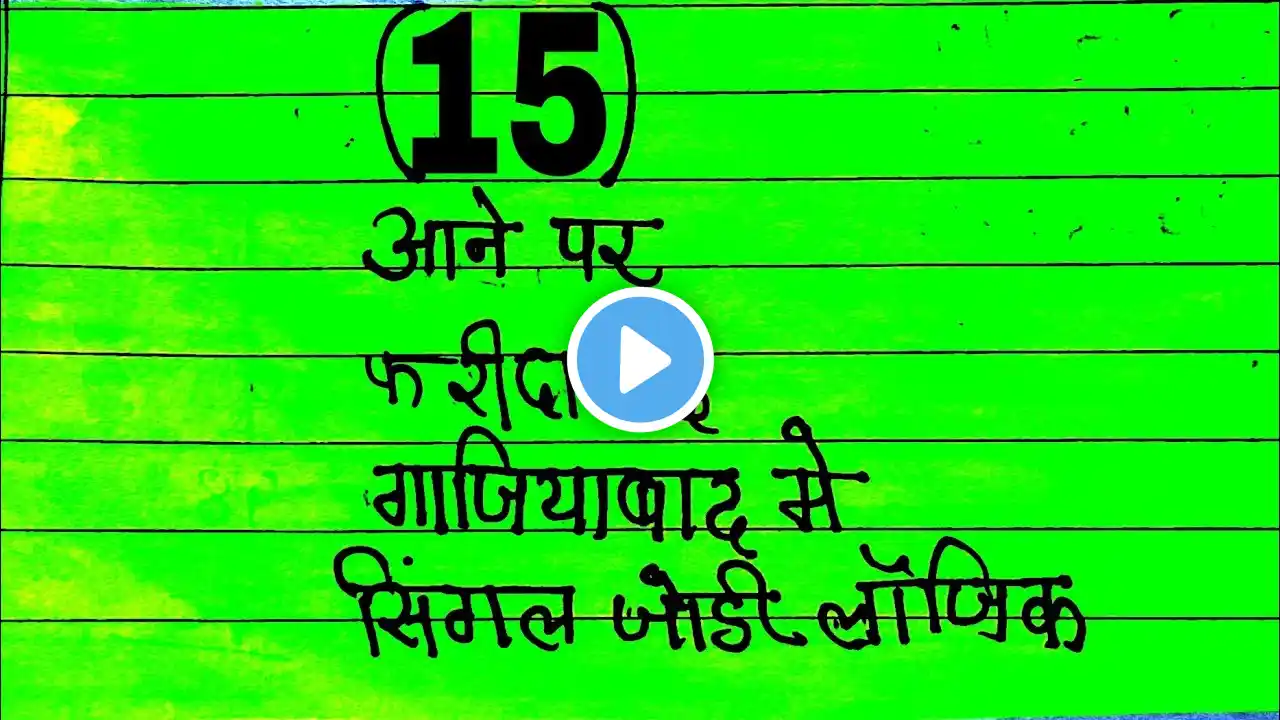 (15)
आने पर
गाजियाबाद मे
सिंगल जोडी लॉजिक